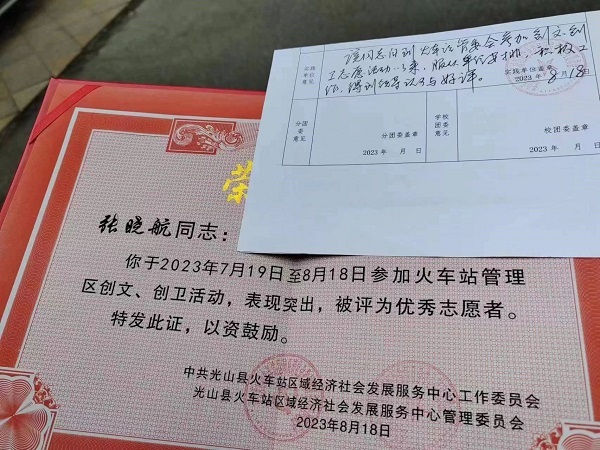 该同志自到火车站管委会参加创文创
卫志愿活动以来，服从单位安排，积极工
作，得到领导认可与好评。
实践
单位
意见
实践单位盖章
2023年8月18日
分团
委
意见
分团委盖章
2023年 月 日
学校
团委
意见
校团委盖章
2023年 月 日
荣
张晓航同志：
你于2023年7月19日至8月18日参加火车站管理
区创文、创卫活动，表现突出，被评为优秀志愿者。
特发此证，以资鼓励。
中共光山县火车站区域经济社会发展服务中心工作委员会
光山县火车站区域经济社会发展服务中心管理委员会
2023年8月18日